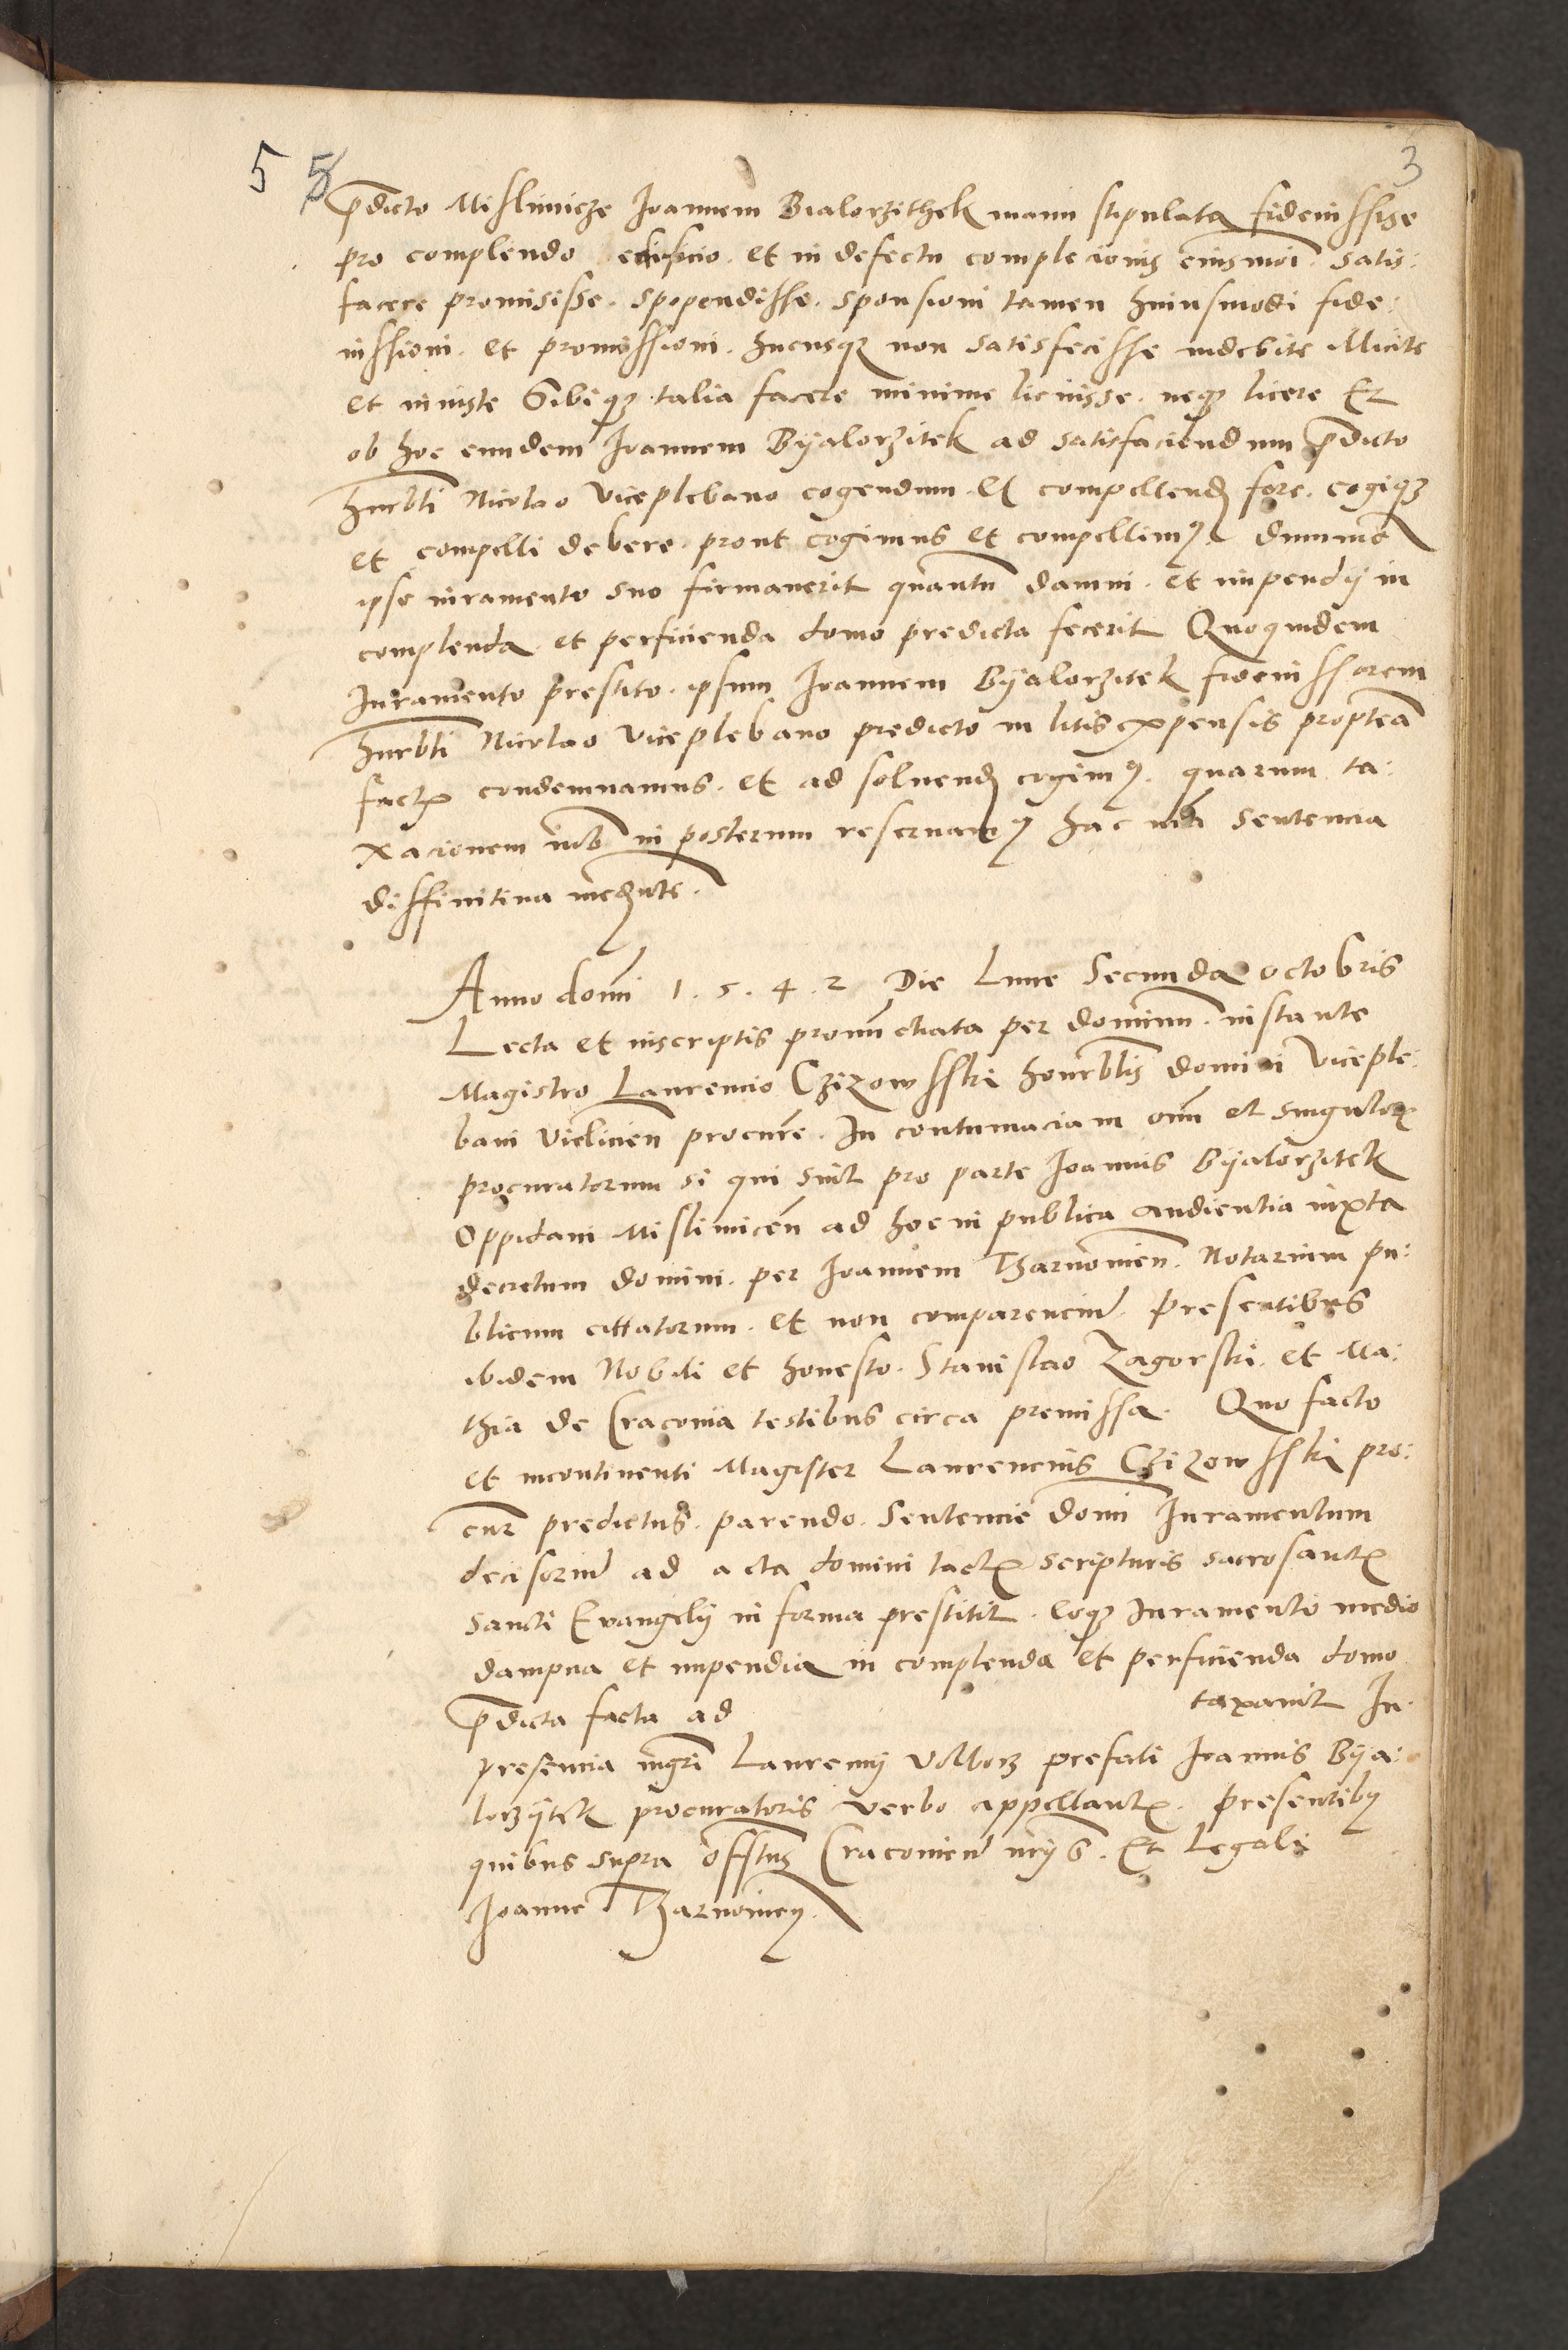 5 5 3
p̄dicto Mislimicze Joannem Bialorzithek manu stipulata fideiussisse
pro complendo edificio. et in defectu complecionis eiusmōi. Satis:
facere promisisse. spopendisse. sponsioni tamen huiusmodi fide:
iussioni. et promissioni. hucusqʒ non satisfecisse indebite illicite
et iniuste Sibiqʒ talia facere minime licuisse. neqʒ licere Et
ob hoc eundem Joannem Byalorzitek ad satisfaciendum p̄dicto
hnrbli Nicolao viceplebano cogendum. Et compellendꝭ fore. cogiqʒ
et compelli debere. prout cogimus et compellimꝰ. dummō
ipse iuramento suo firmauerit quantū damni. et impendij in
complenda et perficienda domo predicta fecerit Quoquidem
Juramento prestito. ipsum Joannem Byalorzitek fideiussorem
hnrbli Nicolao viceplebano predicto in litis expensis propteā
factꝭ condemnamus. et ad soluendꝭ cogimꝰ. quarum ta:
xacionem nob̄ in posterum reseruamꝰ hac nr̄a Sentencia
diffinitiua medn̄te.
Anno domī 1.5.4.2 Die Lune Secunda octobris
Lecta et inscriptis pronunctiata per dominum. instante
Magistro Laurencio Czizowsski honrblis domini viceple:
bani vielicien procur̄e. In contumaciam oīm et singulorꝭ
procuratorum si qui sint pro parte Joannis Byalorzitek
Oppidani Mislimicen̄ ad hoc in publica audientia iuxta
decretum domini. per Joannem Tharnowien̄. Notarium pu:
blicum cittatorum. et non comparenciū. presentibus
ibidem Nobili et honesto. Stanislao Zagorski. et Ma:
thia de Craconia testibus circa premissa. Quo facto
et incontinenti Magister Laurencius Czizowsski pro:
cur̄ predictus. parendo. Sentencie domī Juramentum
decisoriū ad acta domini tactꝭ scripturis sacrosanctꝭ
sancti Evangelij in forma prestitit. eoqʒ Juramento medio
dampna et impendia in complenda et perficienda domo
p̄dicta facta ad taxauit In
presencia mgr̄i Laurencij volborz prefati Joannis Bya:
lorzytek procuratoris verbo appellantꝭ. presentibꝰ
quibus supra offitus Cracouien̄ nrijs. Et Legali
Joanne Tharnowieꝰ